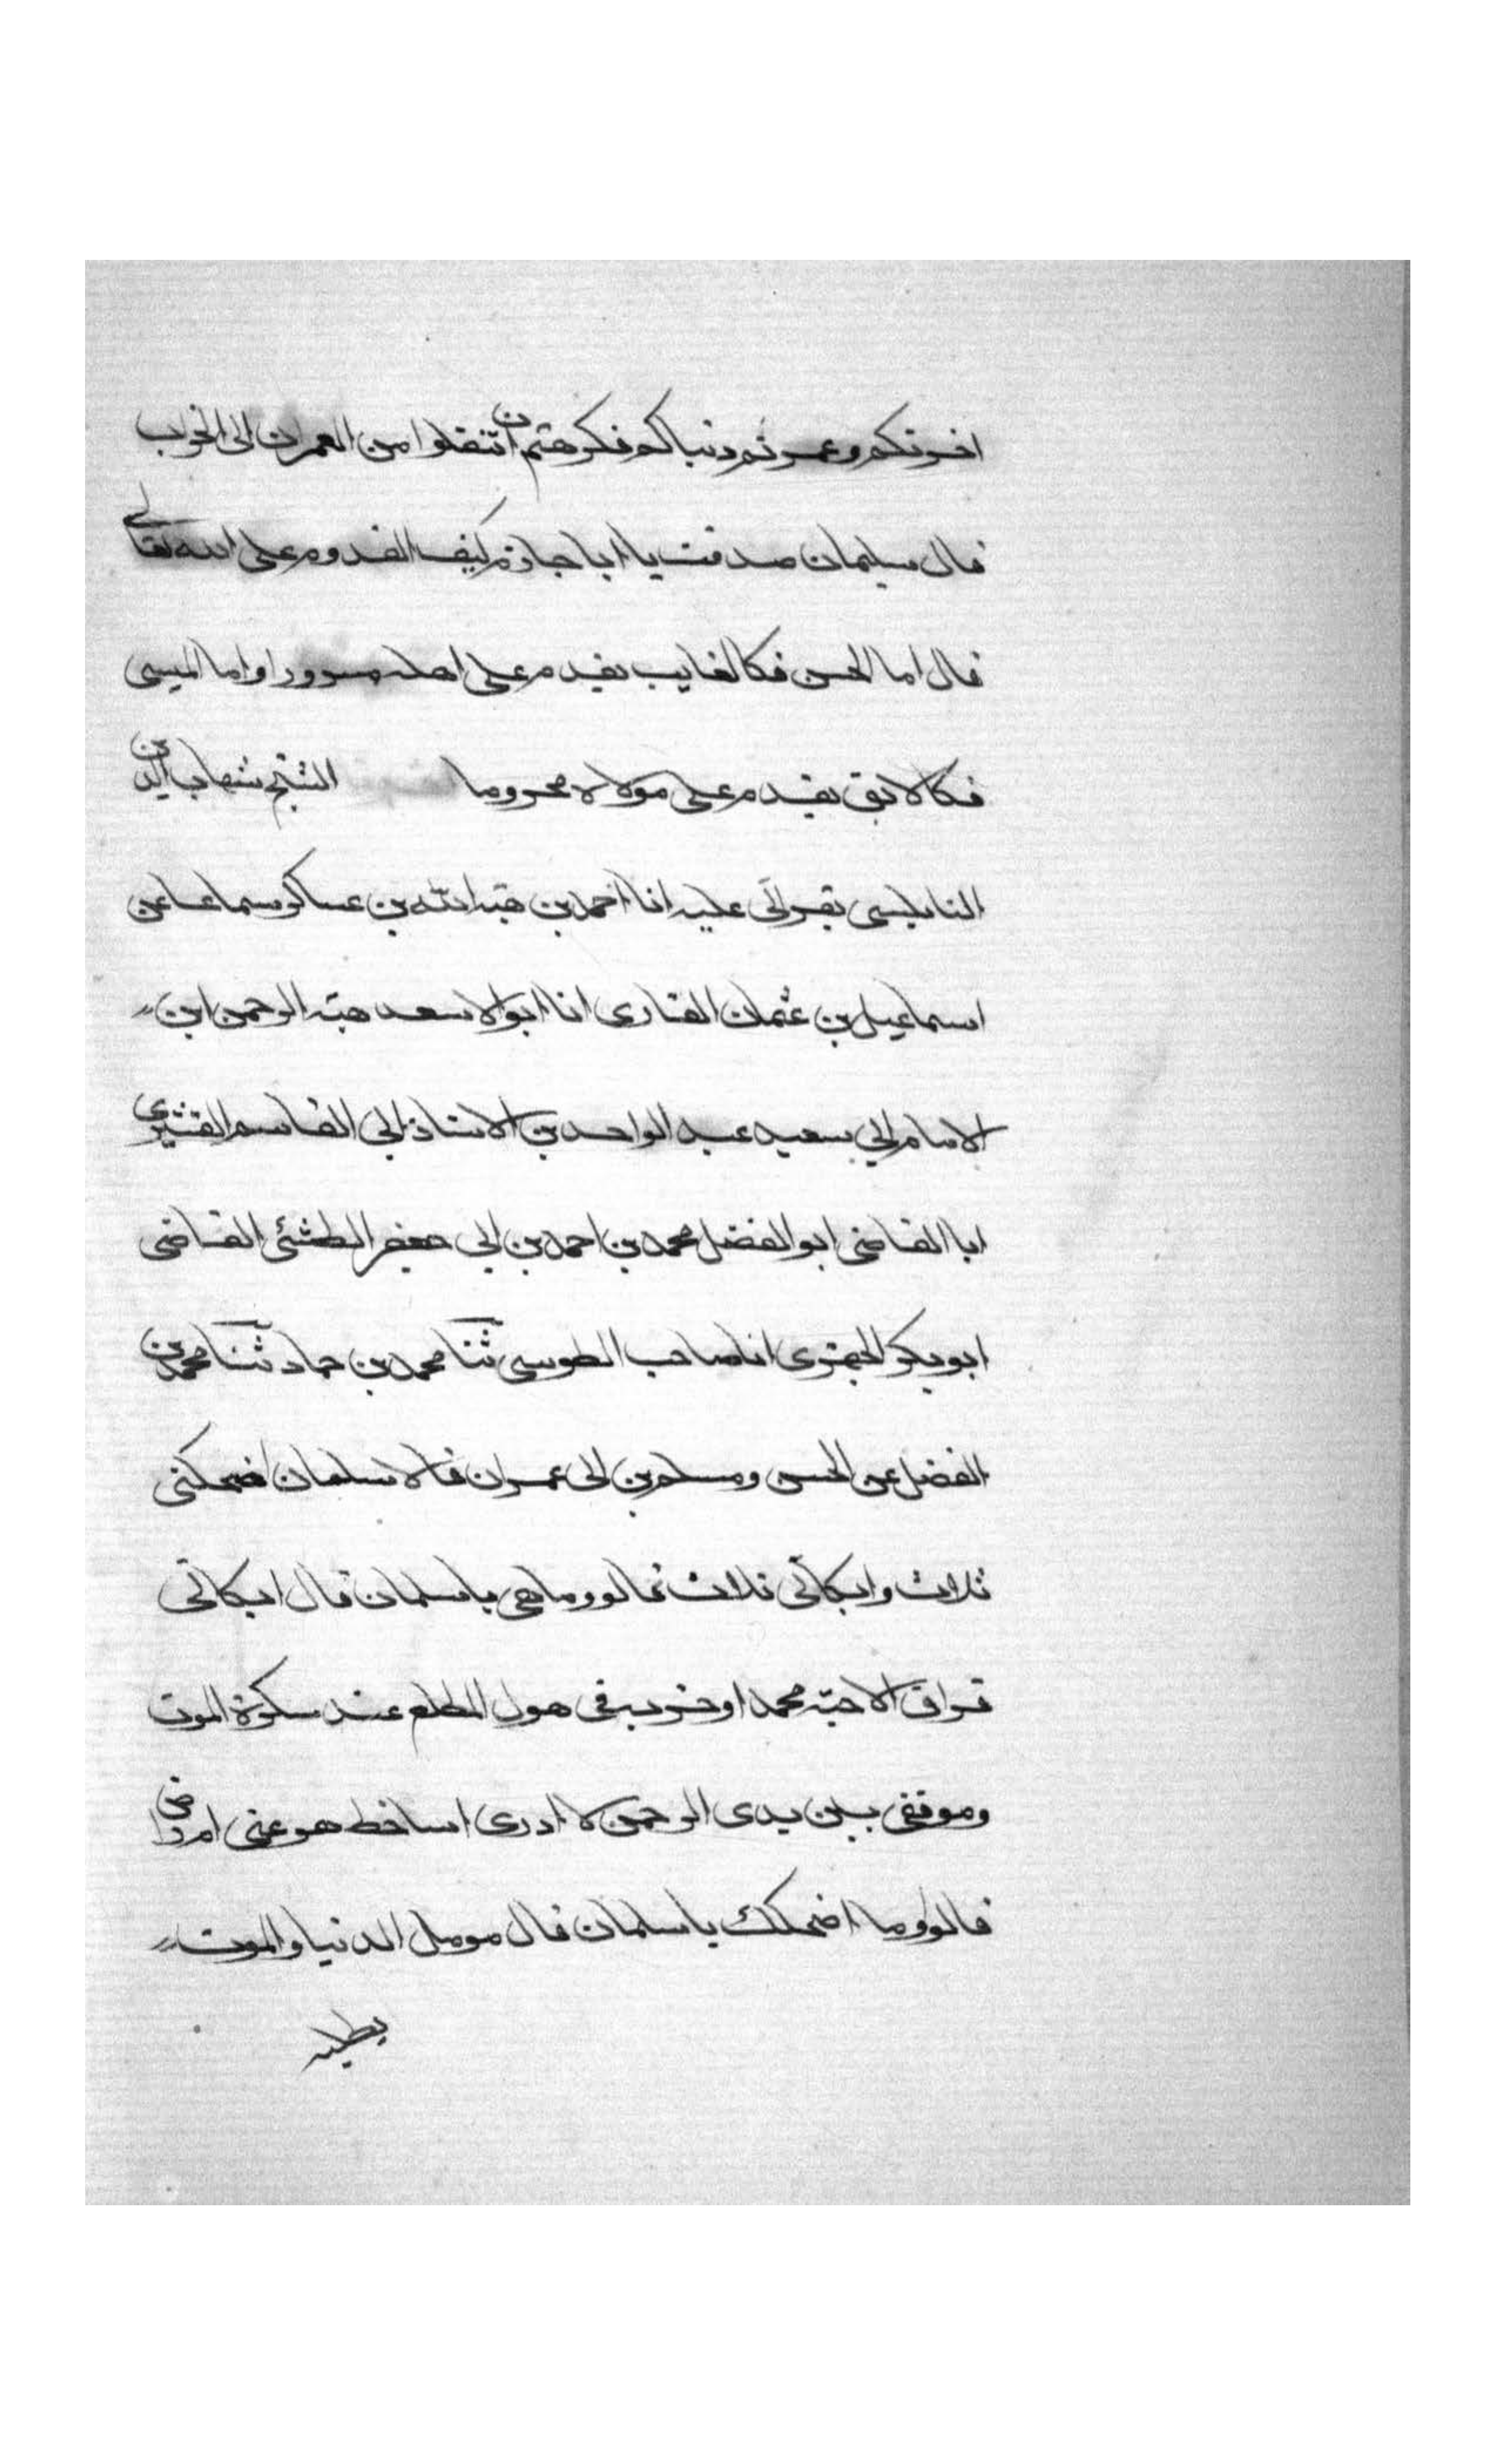 اخرتكم وعمرتم دنياكم فكرهتم ان تنقلوا من العمران الى الخراب
قال سليمان صدقت يا ابا حازم كيف القدوم على الله تعالى
قال اما المحسن فكالغايب يقدم على اهله مسرورا واما المسيى
فكالابق يقدم على مولاه محروما الشيخ شهاب الدين
النابلسى بقراتى عليه انا احمد بن هبة الله بن عساكر سماعا عن
اسماعيل بن عثمان القارى انا ابو الاسعد هبة الرحمن ابن
الامام ابي سعيد عبد الواحد بن الاستاذ ابي القاسم القشيرى
ابا القاضى ابو الفضل محمد بن احمد بن ابي جعفر القاضى
ابو بكر انا صاحب الطوسى ثنا محمد بن حماد ثنا محمد بن
الفضل عن الحسن ومسلم بن ابى عمران قالا سلمان اضحكنى
ثلاث وابكانى ثلاث قالو وما هى يا سلمان قال ابكانى
فراق الاحبة محمد اوحزبه فى هول المطلع عند سكرة الموت
وموقفى بين يدى الرحمن لا ادرى اساخط هو عنى ام راض
قالوا وما اضحكك يا سلمان قال مومل الدنيا والموت
يطلبه